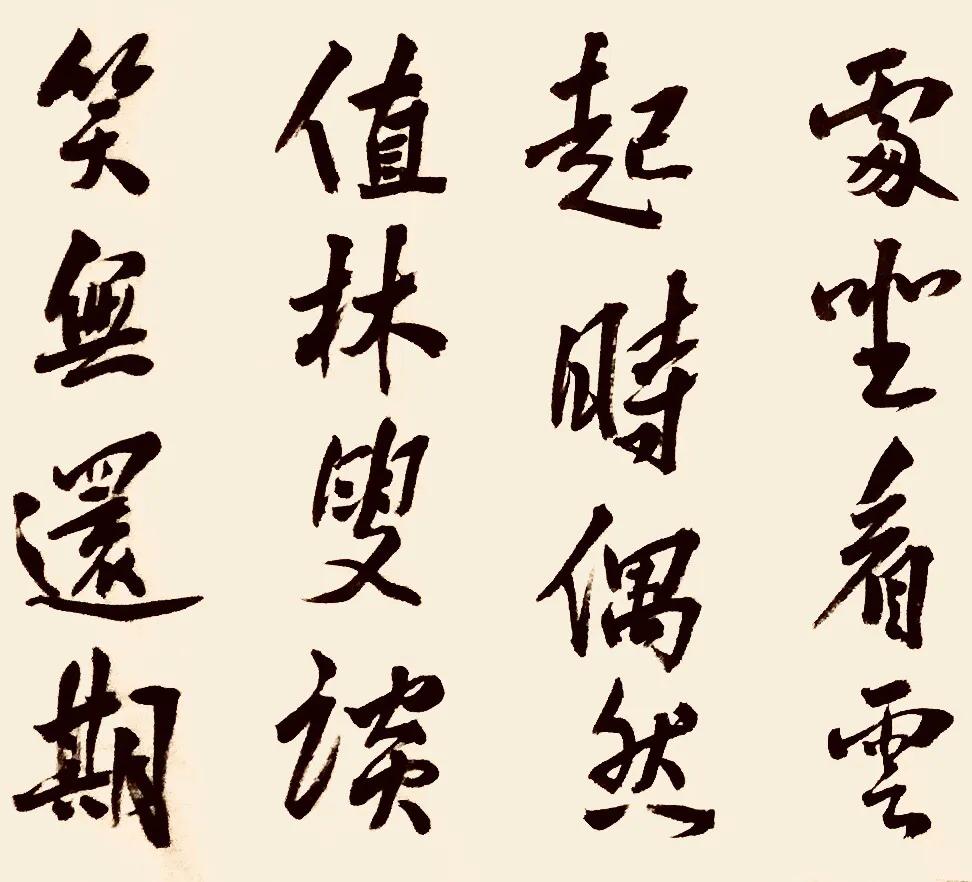 處坐看雲
起時偶然
值林叟談
笑無還期